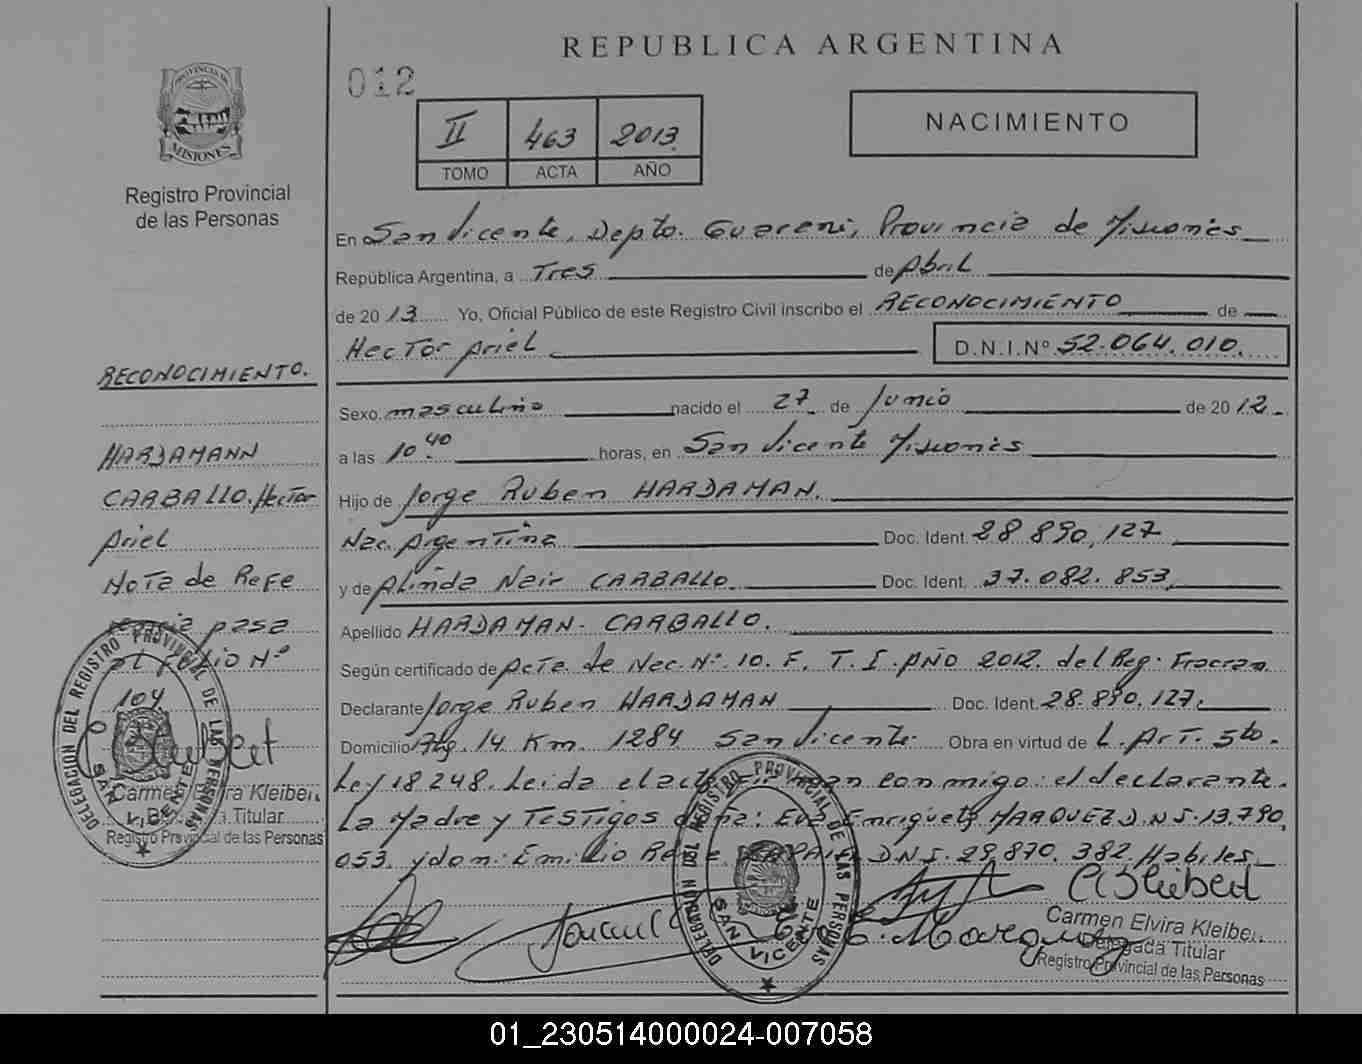 REPUBLICA ARGENTINA
012
PROVINCIA DE
MISIONES
Registro Provincial
de las Personas
II 463 2013
TOMO ACTA AÑO
NACIMIENTO
En San Vicente, Depto. Guarani, Provincia de Misiones
República Argentina, a Tres de Abril
de 2013 Yo, Oficial Público de este Registro Civil inscribo el RECONOCIMIENTO de
Hector Ariel D.N.I.Nº 52.064.010.
Sexo masculino nacido el 27 de Junio de 2012
a las 10:40 horas, en San Vicente Misiones
Hijo de Jorge Ruben HARDAMAN.
Nac. Argentina Doc. Ident. 28.890.127
y de Alinda Nair CARBALLO Doc. Ident. 37.082.853
Apellido HARDAMAN-CARBALLO.
Según certificado de Acta de Nac. Nº 10. F. T. I. AÑO 2012. del Reg. Fracran
Declarante Jorge Ruben HARDAMAN Doc. Ident. 28.890.127.
Domicilio 14 Km. 1284 San Vicente. Obra en virtud de L. Art. 5to.
Ley 18.248. Leida el acta conmigo: el declarante.
La Madre y Testigos doña: Eva Enriqueta MARQUEZ D.N.I. 13.790.
053. y don: Emilio DNI. 29.870.382. Habiles
RECONOCIMIENTO.
HARDAMANN
CARBALLO. Hector
Ariel
Nota de Refe
rencia pasa
al folio Nº
104
DELEGACION DEL REGISTRO PROVINCIAL DE LAS PERSONAS
SAN VICENTE
Carmen Elvira Kleibert
Delegada Titular
Registro Provincial de las Personas
DELEGACION DEL REGISTRO PROVINCIAL DE LAS PERSONAS
SAN VICENTE
Carmen Elvira Kleiber
Delegada Titular
Registro Provincial de las Personas
01_230514000024-007058